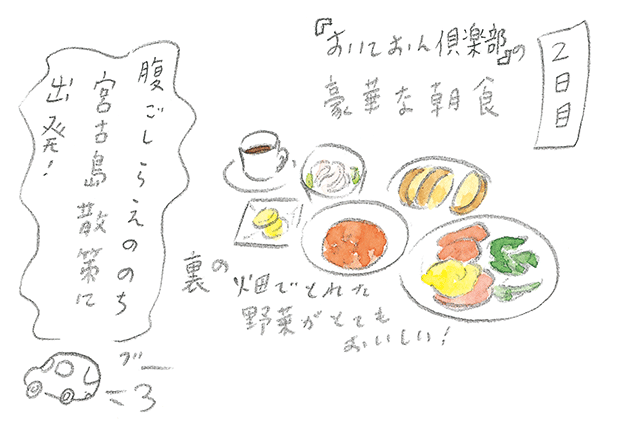 2日目
『おいておん倶楽部』の
豪華な朝食
裏の
畑でとれた
野菜がとても
おいしい!
腹ごしらえののち
宮古島散策に
出発!
ブー